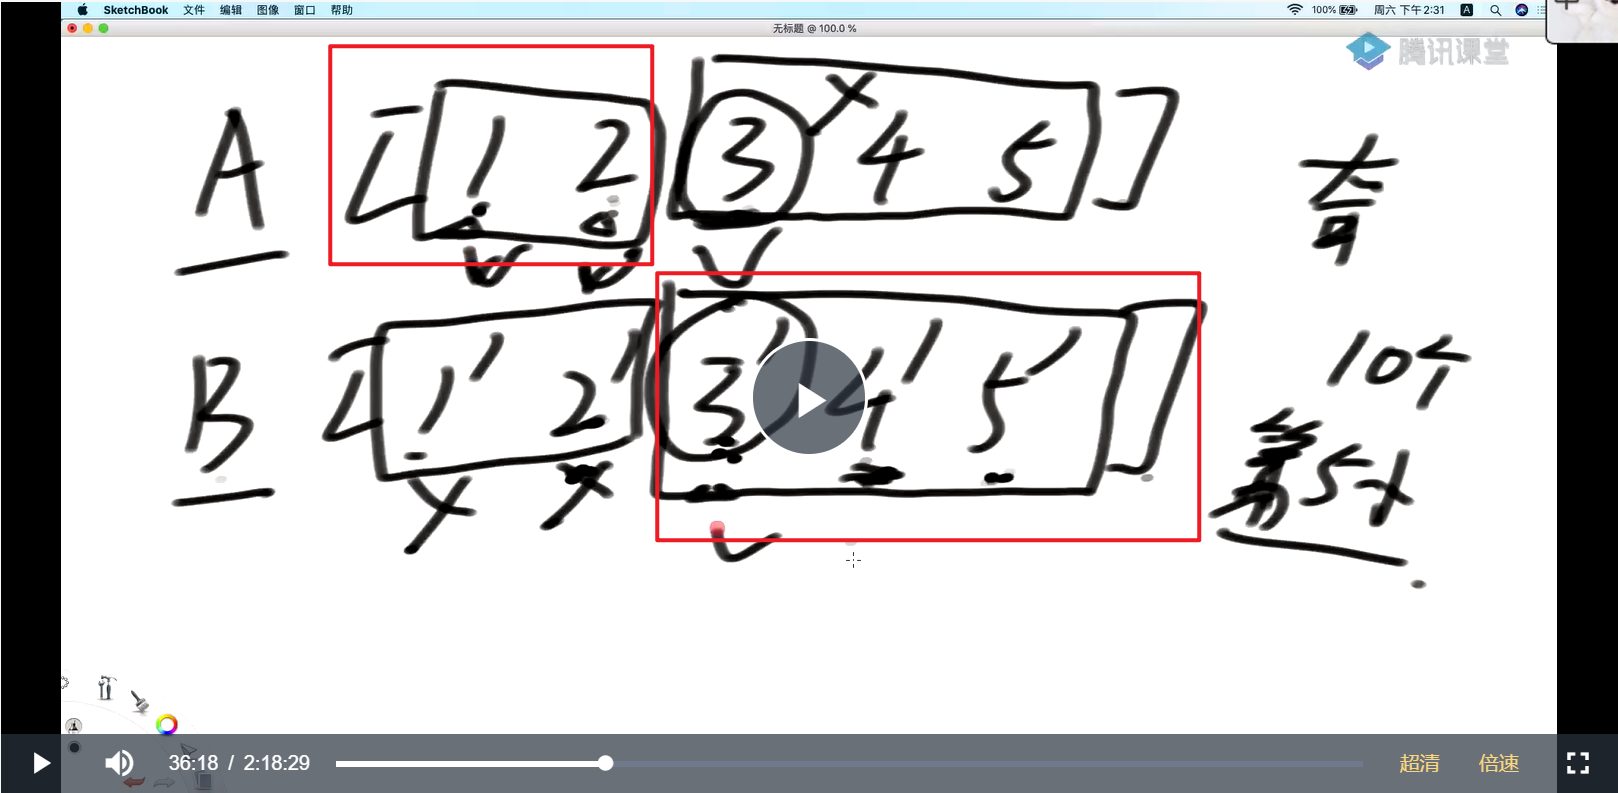 SketchBook 文件 编辑 图像 窗口 帮助 100% 周六 下午2:31 A
无标题 @ 100.0 %
腾讯课堂
A [1 2 3 4 5]
B [1' 2' 3' 4' 5']
10个
第5大
36:18 / 2:18:29 超清 倍速